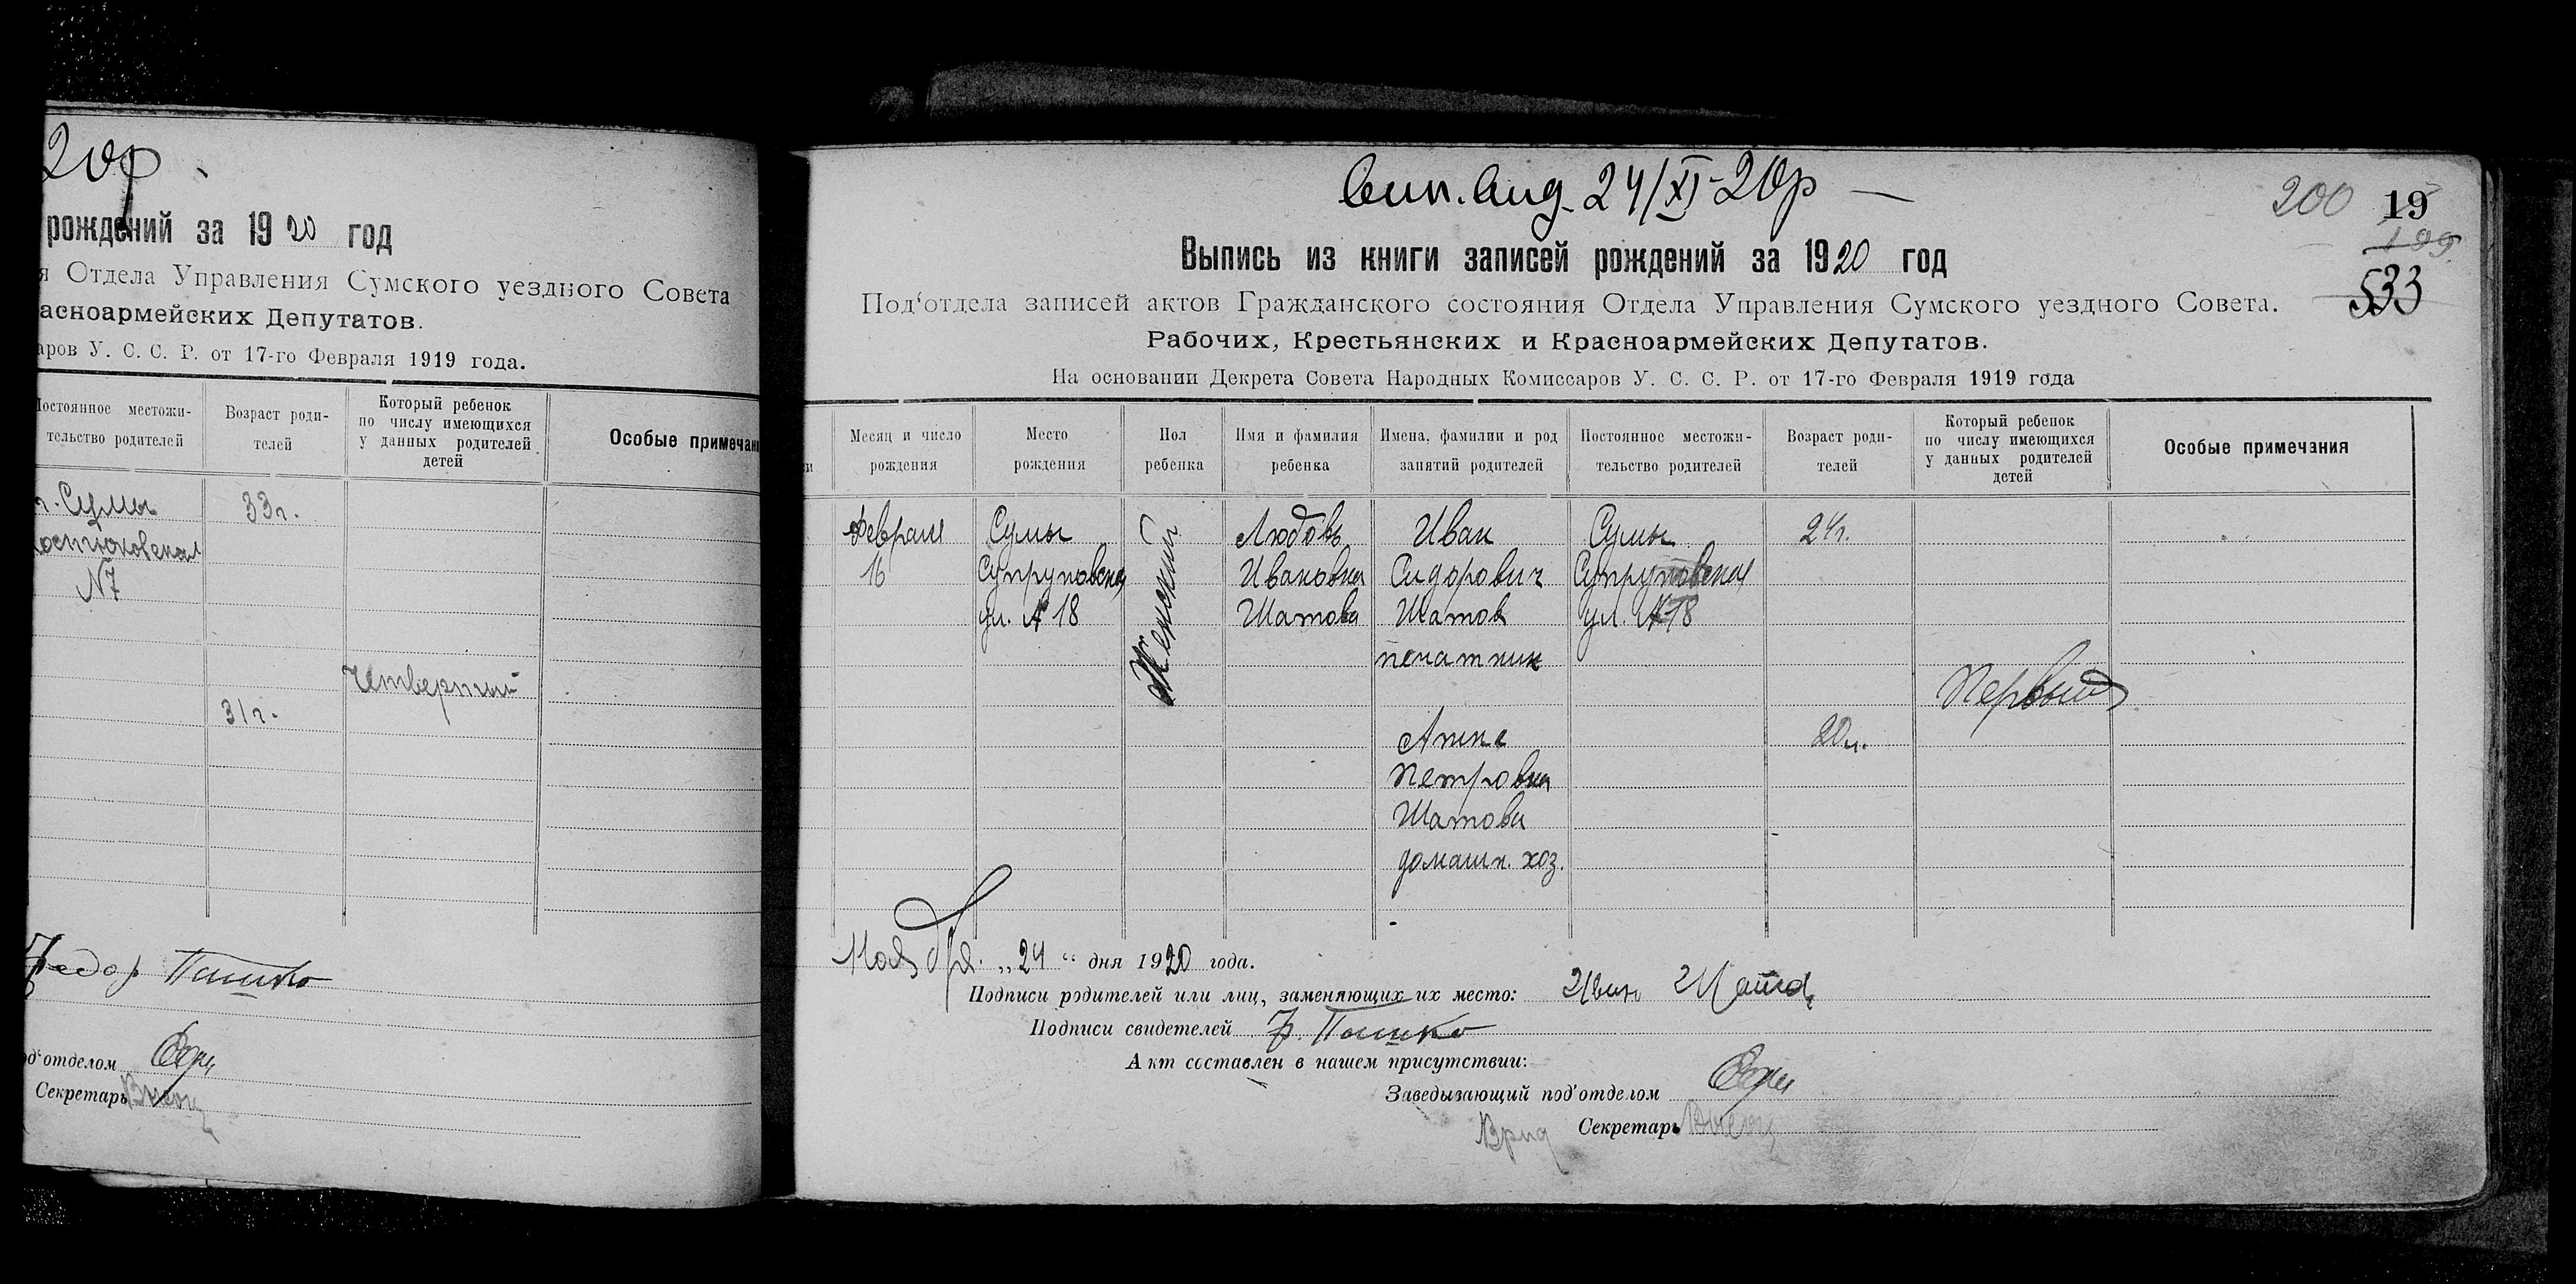 20р
рождений за 1920 год
я Отдела Управления Сумского уездного Совета
асноармейских Депутатов.
аров У. С. С. Р. от 17-го Февраля 1919 года.
Постоянное местожи-
тельство родителей
Возраст роди-
телей
Который ребенок
по числу имеющихся
у данных родителей
детей
Особые примечани
г. Сумы
33г.
N7
Четвертый
31г.
Федор Пашко
од‘отделом
Секретарь
вип. вид. 24/XI-20р
200 19
199
533
Выпись из книги записей рождений за 1920 год
Под‘отдела записей актов Гражданского состояния Отдела Управления Сумского уездного Совета.
Рабочих, Крестьянских и Красноармейских Депутатов.
На основании Декрета Совета Народных Комиссаров У. С. С. Р. от 17-го Февраля 1919 года
Месяц и число
рождения
Место
рождения
Пол
ребенка
Имя и фамилия
ребенка
Имена, фамилии и род
занятий родителей
Постоянное местожи-
тельство родителей
Возраст роди-
телей
Который ребенок
по числу имеющихся
у данных родителей
детей
Особые примечания
Февраля
16
Сумы
Супруновская
ул. № 18
Женский
Любовь
Ивановна
Шатова
Иван
Сидорович
Шатов
печатник
Сумы
Супруновская
ул. №18
24г.
Первый
Анна
Петровна
Шатова
домашн. хоз.
20л.
Ноября „24“ дня 1920 года.
Подписи родителей или лиц, заменяющих их место: Иван Шатов
Подписи свидетелей Ф. Пашко
Акт составлен в нашем присутствии:
Заведывающий под‘отделом
Врид Секретарь